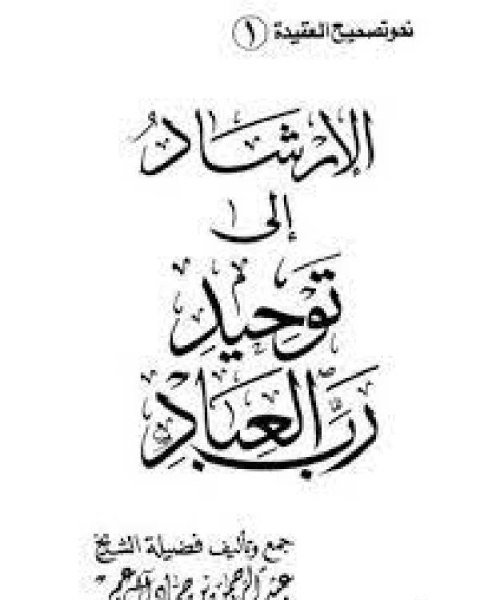 نحو تصحيح العقيدة (١)
الإرشادُ
إلى
توحيدِ
ربِّ العِبادِ
جمع وتأليف فضيلة الشيخ
عبد الرحمن بن حماد آل عمر